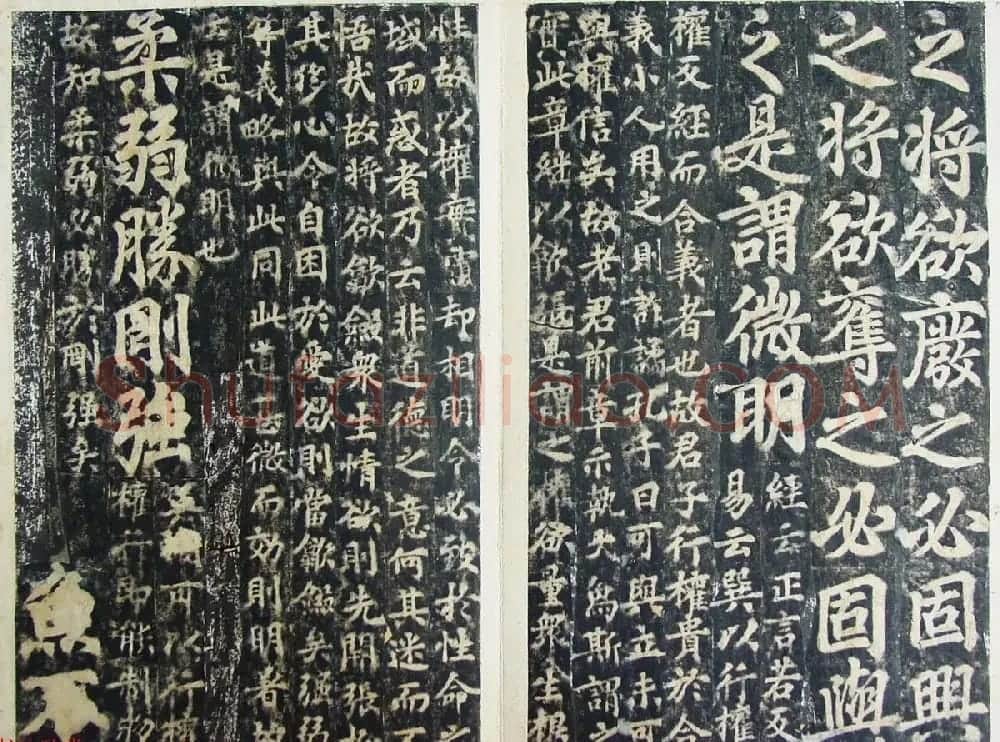 之將欲廢之必固興
之將欲奪之必固與
之是謂微明
經云正言若反
易云巽以行權
權反經而合義者也故君子行權貴於合
義小人用之則詐譎孔子曰可與立未可
與權信矣故老君前章示執大象斯謂之
實此章繼以歙張是謂之權欲量衆生根
性故以權實覆却相明令必致於性命之
域而惑者乃云非道德之意何其迷而不
悟哉故將欲歙斂衆生情欲則先開張極
其侈心令自困於愛欲則當歙斂矣强弱
等義略與此同此道甚微而効則明著故
云是謂微明也
柔弱勝剛强
巽順可以行權
權行即能制物
故知柔弱必勝於剛强矣
魚不
Shufaziliao.COM